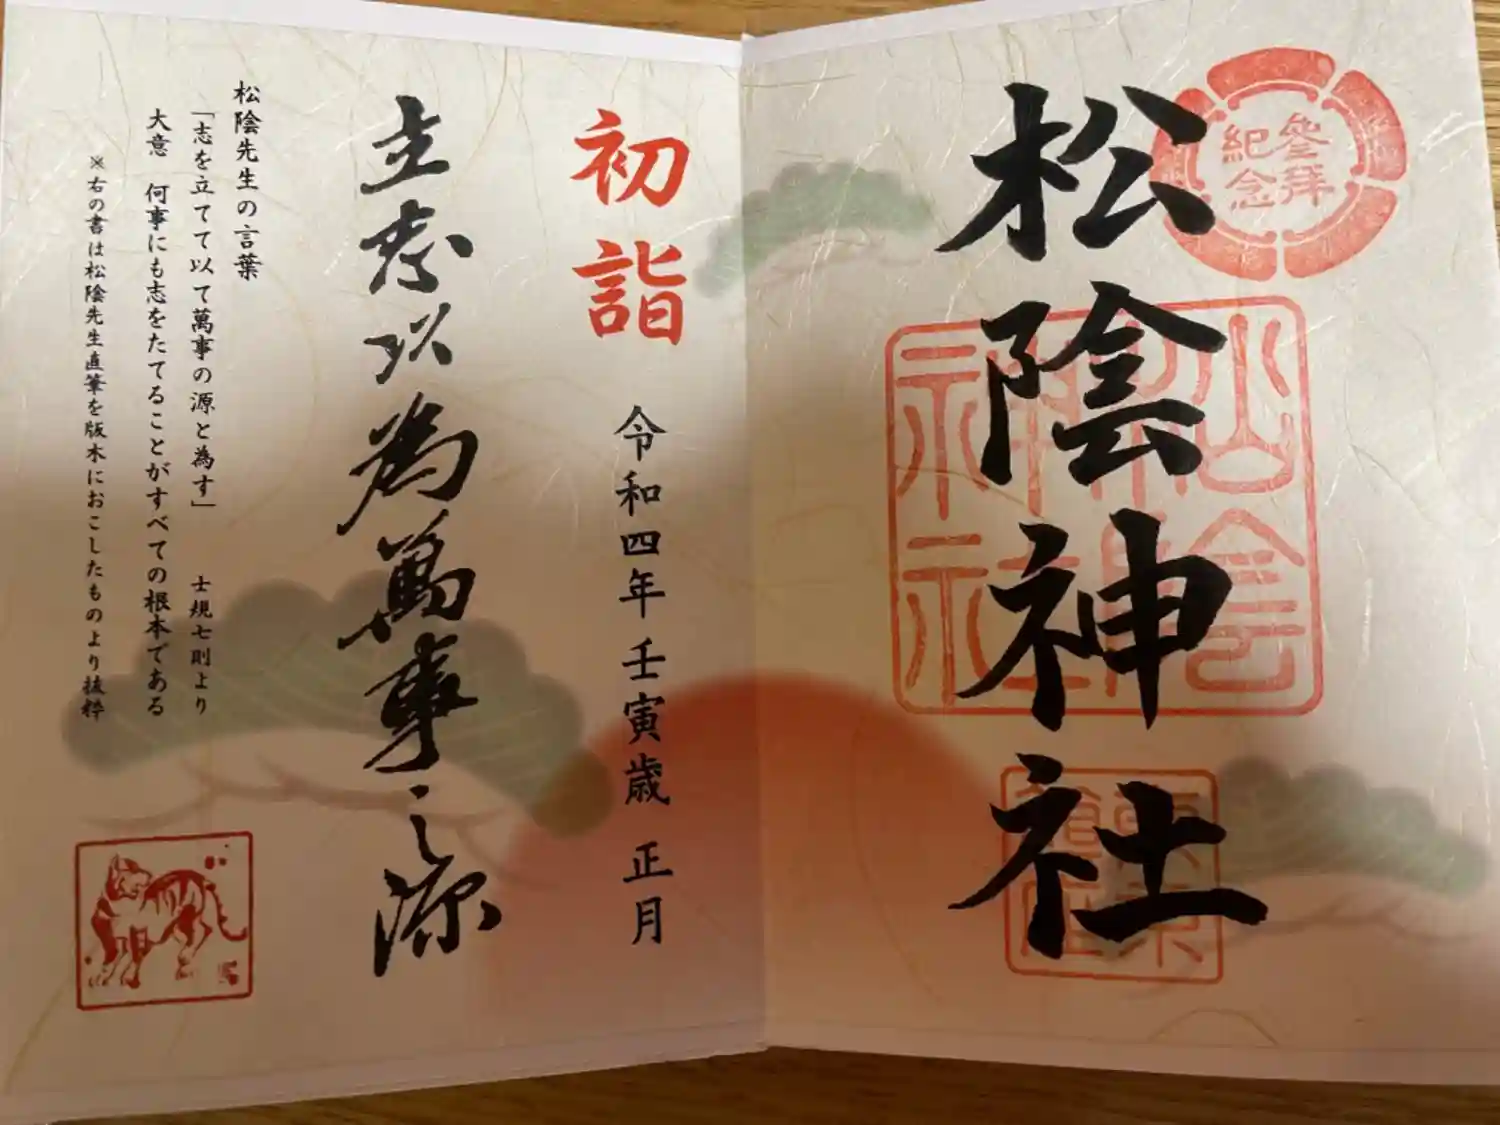 参拜
紀念
松陰神社
松陰
神社
初詣
令和四年 壬寅歳 正月
立志以為萬事之源
松陰先生の言葉
「志を立てて以て萬事の源と為す」 士規七則より
大意 何事にも志をたてることがすべての根本である
※右の書は松陰先生直筆を版木におこしたものより抜粋